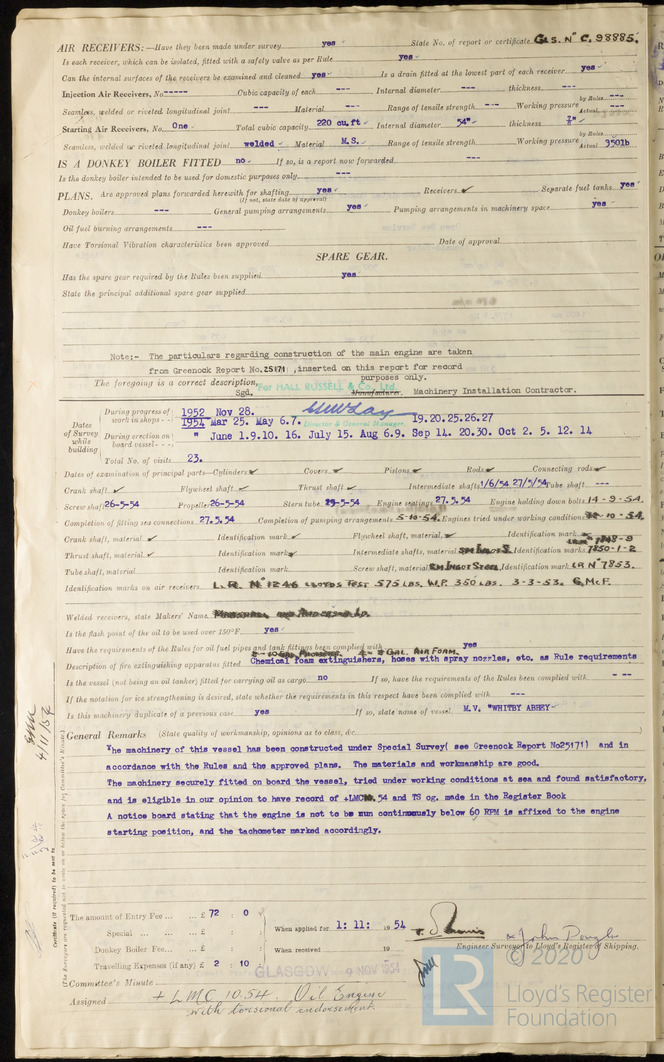 AIR RECEIVERS:—Have they been made under survey yes State No. of report or certificate GLS. No C. 98885.
Is each receiver, which can be isolated, fitted with a safety valve as per Rule yes
Can the internal surfaces of the receivers be examined and cleaned yes Is a drain fitted at the lowest part of each receiver yes
Injection Air Receivers, No. ----- Cubic capacity of each --- Internal diameter --- thickness ---
Seamless, welded or riveted longitudinal joint --- Material --- Range of tensile strength --- Working pressure by Rules --- Actual ---
Starting Air Receivers, No. One Total cubic capacity 220 cu.ft Internal diameter 54" thickness 7/8"
Seamless, welded or riveted longitudinal joint welded Material M.S. Range of tensile strength Working pressure by Rules Actual 350lb
IS A DONKEY BOILER FITTED no If so, is a report now forwarded ---
Is the donkey boiler intended to be used for domestic purposes only ---
PLANS. Are approved plans forwarded herewith for shafting yes Receivers ✓ Separate fuel tanks yes
(If not, state date of approval)
Donkey boilers --- General pumping arrangements yes Pumping arrangements in machinery space yes
Oil fuel burning arrangements ---
Have Torsional Vibration characteristics been approved Date of approval
SPARE GEAR.
Has the spare gear required by the Rules been supplied yes
State the principal additional spare gear supplied
Note:- The particulars regarding construction of the main engine are taken
from Greenock Report No.25171 ,inserted on this report for record
purposes only.
The foregoing is a correct description, For HALL RUSSELL & Co., Ltd.
Sgd. Manufacturer. Machinery Installation Contractor.
Director & General Manager.
Dates of Survey while building
During progress of work in shops - - 1952 Nov 28.
1954 Mar 25. May 6.7. 19.20.25.26.27
During erection on board vessel - - - " June 1.9.10. 16. July 15. Aug 6.9. Sep 14. 20.30. Oct 2. 5. 12. 14
Total No. of visits 23.
Dates of examination of principal parts—Cylinders ✓ Covers ✓ Pistons ✓ Rods ✓ Connecting rods ✓
Crank shaft ✓ Flywheel shaft ✓ Thrust shaft ✓ Intermediate shafts 1/6/54 27/5/54 Tube shaft ---
Screw shaft 26-5-54 Propeller 26-5-54 Stern tube 25-5-54 Engine seatings 27.5.54 Engine holding down bolts 14-9-54.
Completion of fitting sea connections 27.5.54 Completion of pumping arrangements 5-10-54. Engines tried under working conditions 10-54.
Crank shaft, material ✓ Identification mark ✓ Flywheel shaft, material ✓ Identification mark 7848-9
Thrust shaft, material ✓ Identification mark ✓ Intermediate shafts, material SM INGOT S. Identification marks 7850-1-2
Tube shaft, material Identification mark Screw shaft, material SM INGOT STEEL Identification mark LR No 7853.
Identification marks on air receivers L.R. No 1246 LLOYDS TEST 575 LBS. W.P. 350 LBS. 3-3-53. G.McF.
Welded receivers, state Makers' Name
Is the flash point of the oil to be used over 150°F. yes
Have the requirements of the Rules for oil fuel pipes and tanks fittings been complied with yes
2 GAL. AIR FOAM.
Description of fire extinguishing apparatus fitted Chemical foam extinguishers, hoses with spray nozzles, etc. as Rule requirements
Is the vessel (not being an oil tanker) fitted for carrying oil as cargo. no If so, have the requirements of the Rules been complied with - --
If the notation for ice strengthening is desired, state whether the requirements in this respect have been complied with ---
Is this machinery duplicate of a previous case yes If so, state name of vessel M.V. "WHITBY ABBEY"
General Remarks (State quality of workmanship, opinions as to class, &c.
The machinery of this vessel has been constructed under Special Survey( see Greenock Report No25171) and in
accordance with the Rules and the approved plans. The materials and workmanship are good.
The machinery securely fitted on board the vessel, tried under working conditions at sea and found satisfactory,
and is eligible in our opinion to have record of +LMC 10.54 and TS og. made in the Register Book
A notice board stating that the engine is not to be run continuously below 60 RPM is affixed to the engine
starting position, and the tachometer marked accordingly.
4/11/54
Certificate (if required) to be sent to
(The Surveyors are requested not to write on or below the space for Committee's Minute.)
The amount of Entry Fee ... ... £ 72 : 0
Special ... ... ... £ : When applied for 1: 11: 1954
Donkey Boiler Fee... ... £ : When received 19
Travelling Expenses (if any) £ 2 : 10
Engineer Surveyor to Lloyd's Register of Shipping.
GLASGOW 9 NOV 1954
Committee's Minute
Assigned + LMC 10.54. Oil Engine
with torsional endorsement.
© 2020
LR
Lloyd's Register
Foundation